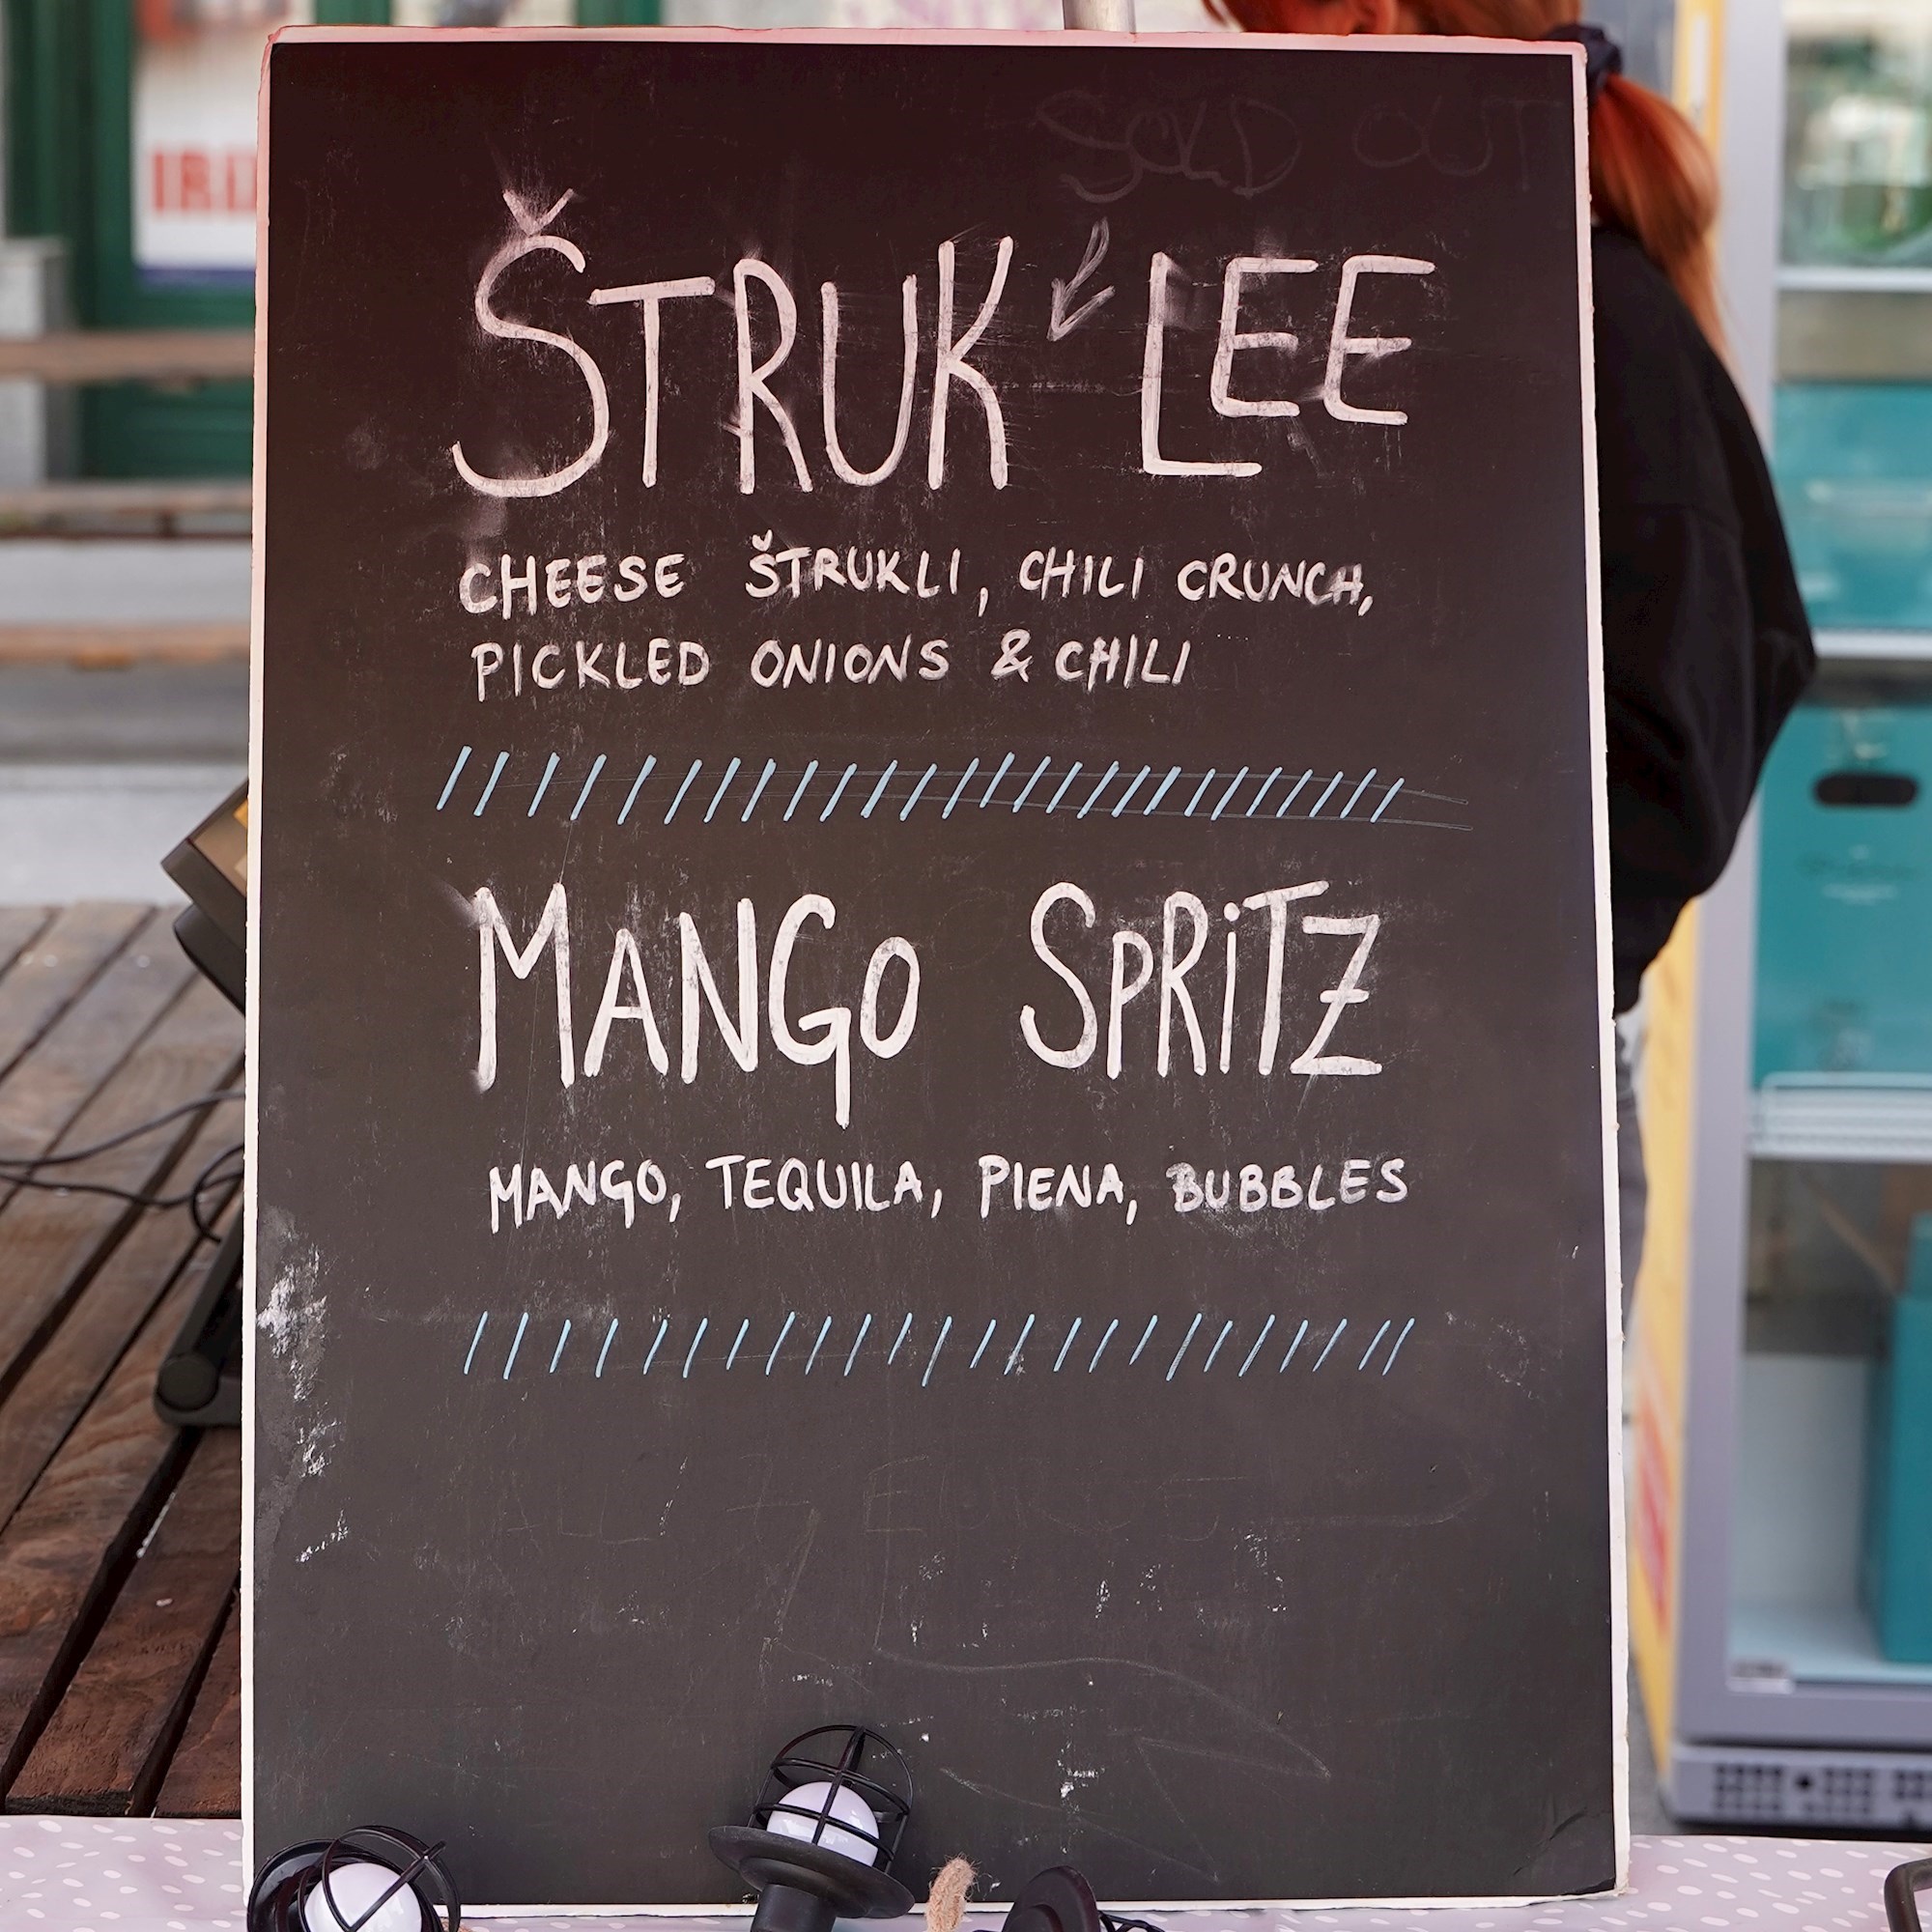 SOLD OUT
ŠTRUK LEE
CHEESE ŠTRUKLI, CHILI CRUNCH,
PICKLED ONIONS & CHILI
MANGO SPRiTZ
MANGO, TEQUILA, PIENA, BUBBLES